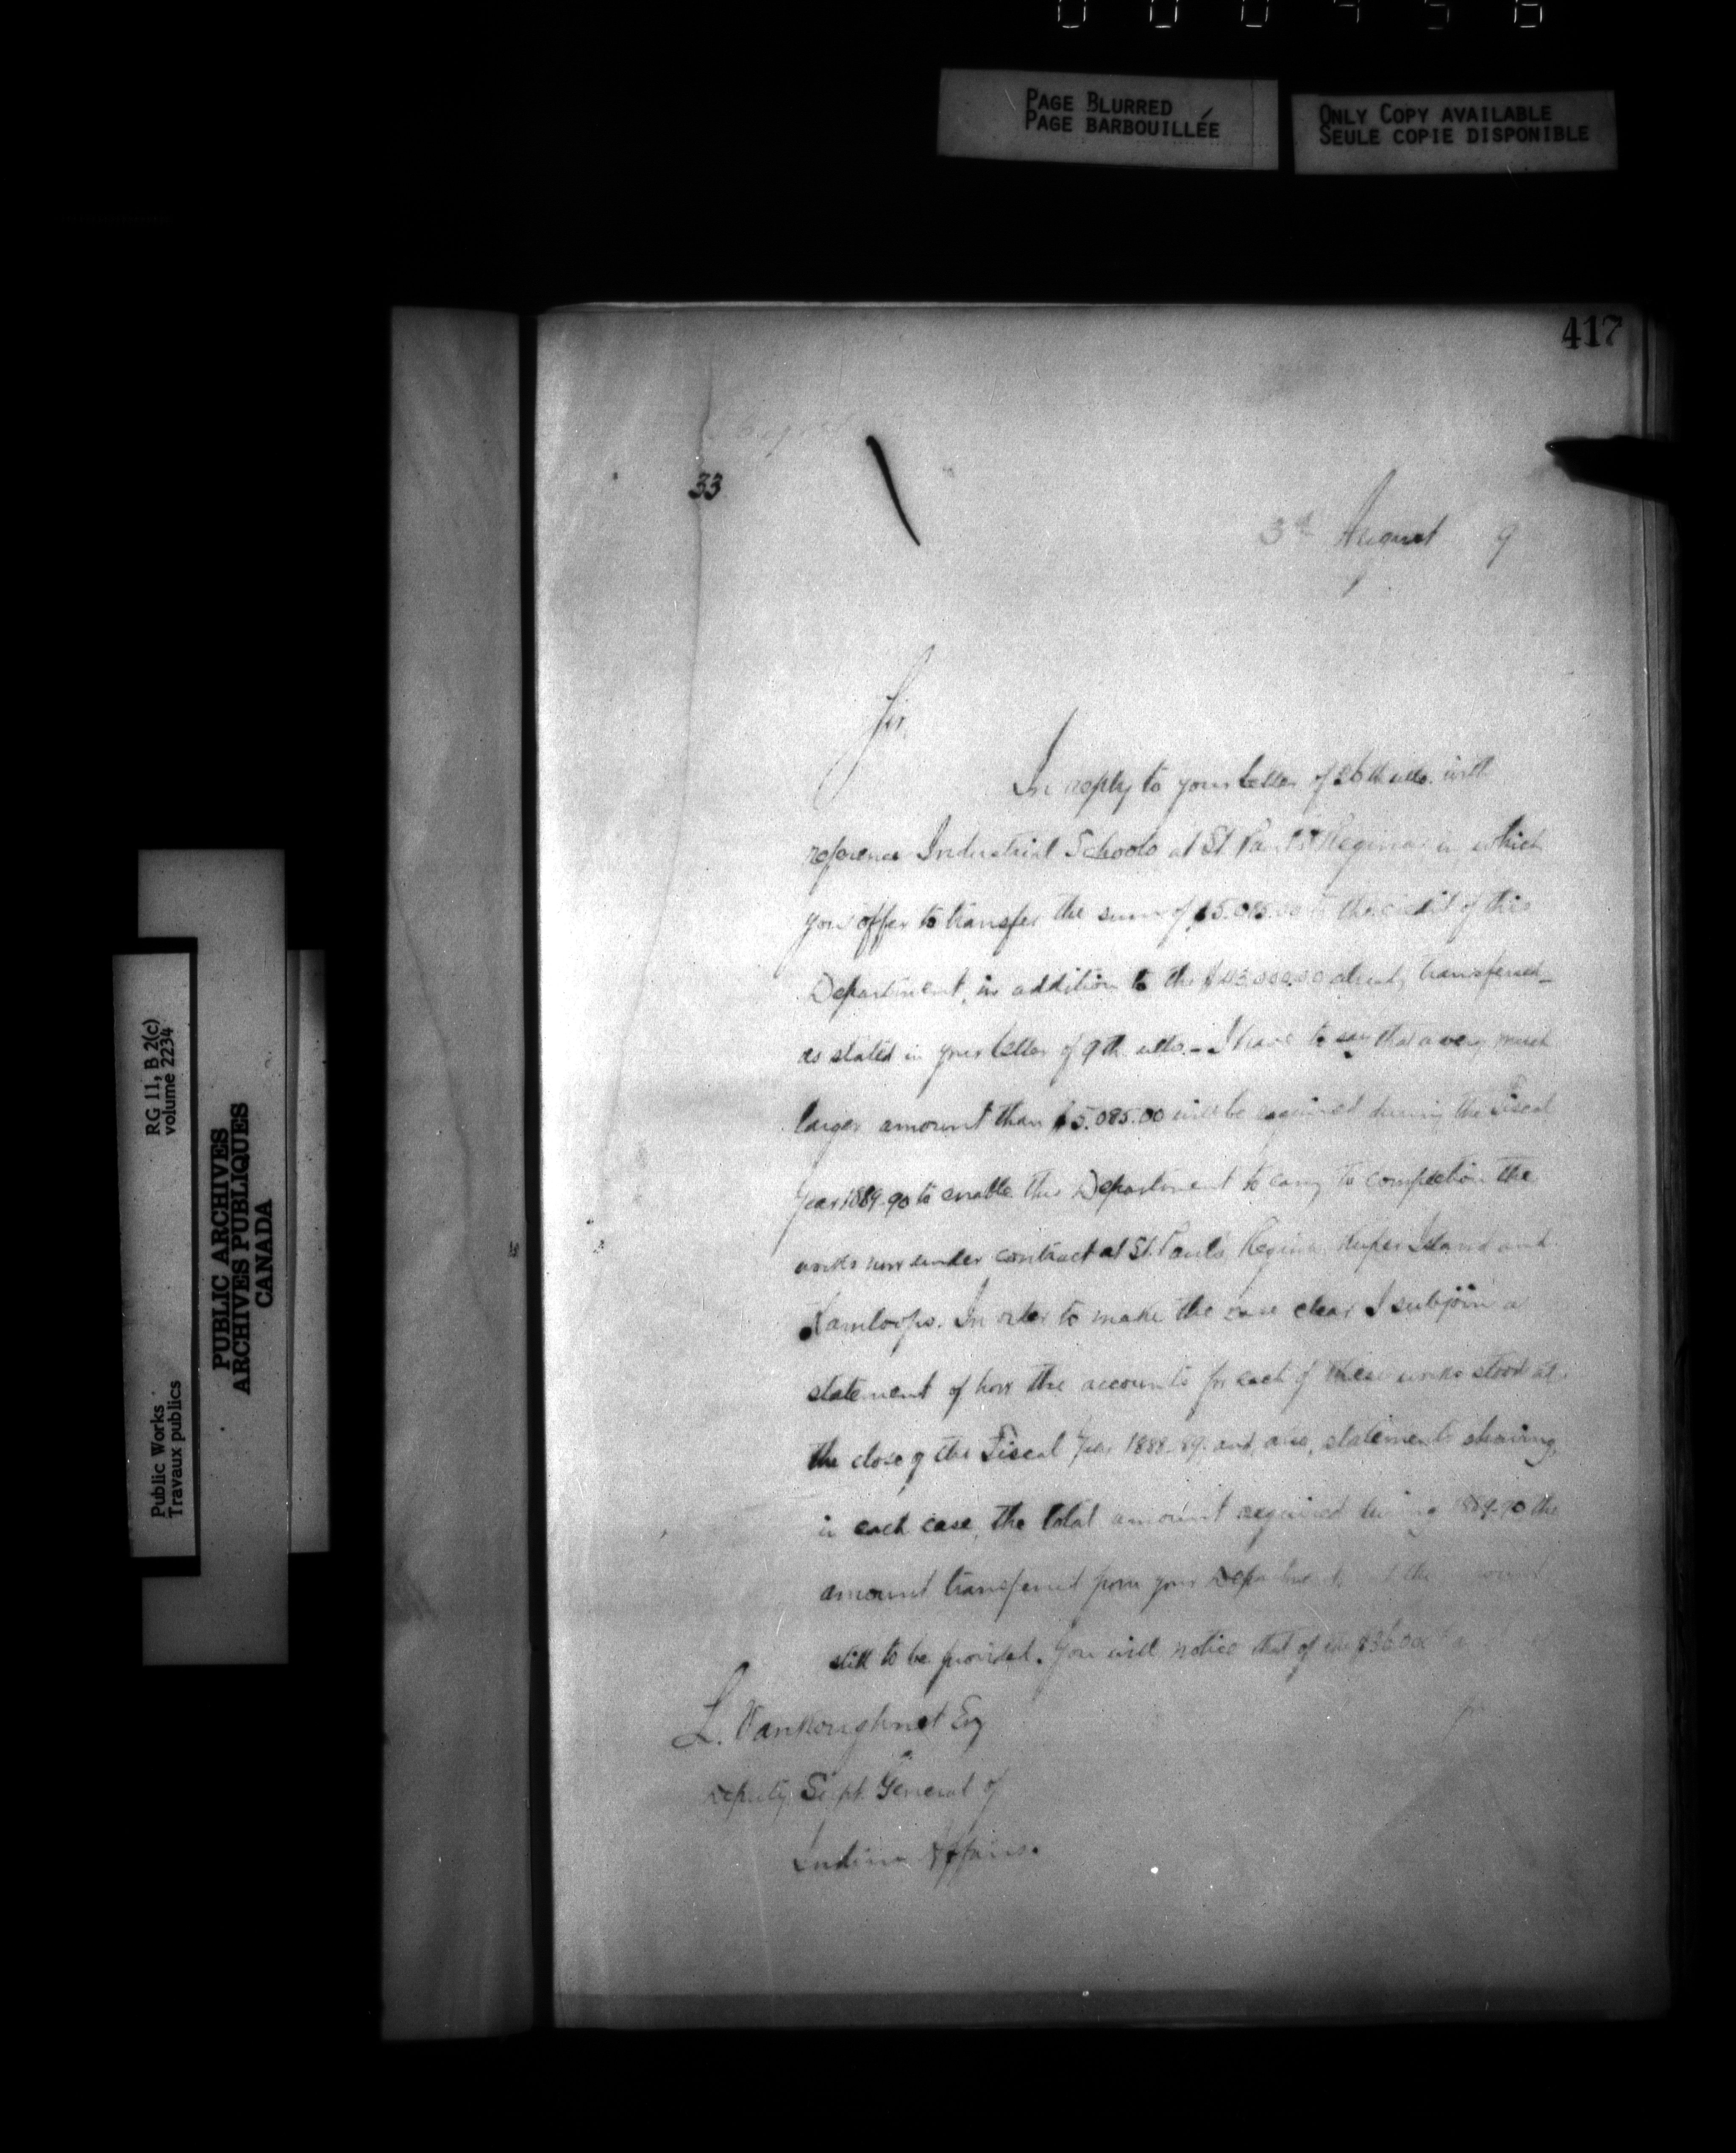 PAGE BLURRED
PAGE BARBOUILLÉE
ONLY COPY AVAILABLE
SEULE COPIE DISPONIBLE
417
33
3rd August 9
Sir,
In reply to your letter of 26th ulto. with
reference Industrial Schools at St Paul's & Regina in which
you offer to transfer the sum of $5.085.00 to the credit of this
Department, in addition to the $43.000.00 already transferred _
as stated in your letter of 9th ulto. - I have to say that a very much
larger amount than $5.085.00 will be required during the Fiscal
Year 1889-90 to enable this Department to carry to completion the
works now under contract at St. Pauls, Regina, Kuper Island and
Kamloops. In order to make the case clear I subjoin a
statement of how the accounts for each of these works stood at
the close of the Fiscal Year 1888-89. and, also, statements showing,
in each case, the total amount required during 1889-90 the
amount transferred from your Department, and the amount
still to be provided. You will notice that of the
L. VanKoughnet Esq
Deputy Supt. General of
Indian Affairs.
RG 11, B 2(c)
volume 2234
Public Works
Travaux publics
PUBLIC ARCHIVES
ARCHIVES PUBLIQUES
CANADA